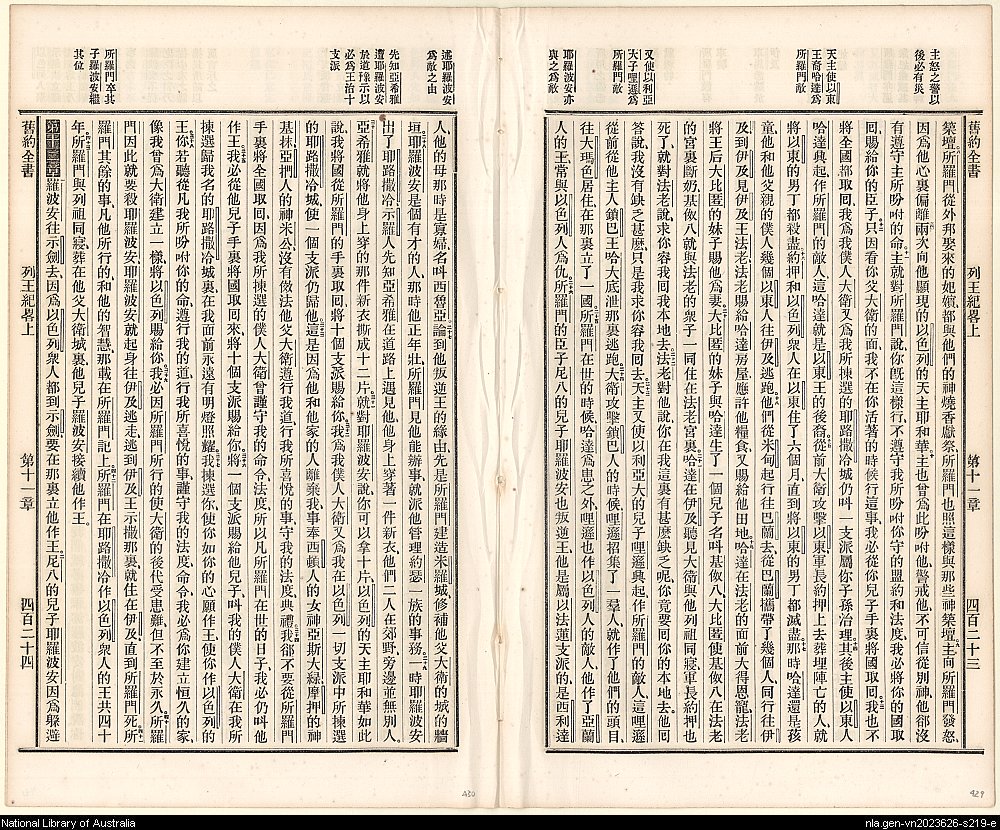 主怒之警以
後必有災
天主使以東
王裔哈達爲
所羅門敵
又使以利亞
大子哩遜爲
所羅門敵
耶羅波安亦
與之爲敵
舊約全書 列王紀畧上 第十一章 四百二十三
築壇、所羅門從外邦娶來的妃嬪、都與他們的神燒香獻祭、所羅門也照這樣與那些神築壇。主向所羅門發怒、
因爲他心裏偏離兩次向他顯現的以色列的天主耶和華。主也曾爲此吩咐他、警戒他、不可信從別神、他卻沒
有遵守主所吩咐的命。主就對所羅門說、你旣這樣行、不遵守我所吩咐你守的盟約和法度、我必將你的國取
回、賜給你的臣子。只因看你父大衞的面、我不在你活著的時候行這事、我必從你兒子手裏將國取回。我也不
將全國都取回、我爲我僕人大衞、又爲我所揀選的耶路撒冷城、仍叫一支派屬你子孫治理。其後主使以東人
哈達興起、作所羅門的敵人、這哈達就是以東王的後裔。從前大衞攻擊以東、軍長約押上去葬埋陣亡的人、就
將以東的男丁都殺盡。約押和以色列衆人、在以東住了六個月、直到將以東的男丁都滅盡。那時哈達還是孩
童、他和他父親的僕人幾個以東人、往伊及逃跑。他們從米甸起行、往巴蘭去、從巴蘭攜帶了幾個人、同行往伊
及、到伊及見伊及王法老、法老賜給哈達房屋、應許他糧食、又賜給他田地。哈達在法老的面前大得恩寵、法老
將王后大比匿的妹子賜他爲妻。大比匿的妹子與哈達生了一個兒子、名叫基伋八、大比匿使基伋八在法老
的宮裏斷奶、基伋八就與法老的衆子一同住在法老宮裏。哈達在伊及聽見大衞與他列祖同寢、軍長約押也
死了、就對法老說、求你容我回我本地去。法老對他說、你在我這裏大的有甚麽缺乏呢、你竟要回你的本地去。他回
答說、我沒有缺乏甚麽、只是我求你容我回去。天主又使以利亞大的兒子哩遜興起、作所羅門的敵人、這哩遜
從前從他主人鎖巴王哈大底泄那裏逃跑。大衞攻擊鎖巴人的時候、哩遜招集了一羣人、就作了他們的頭目、
往大瑪色居住、在那裏立了一國。所羅門在世的時候、哈達爲患之外、哩遜也作以色列人的敵人、他作了亞蘭
人的王、常與以色列人爲仇。所羅門的臣子尼八的兒子耶羅波安也叛逆王、他是屬以法蓮支派的、是西利達
429
述耶羅波安
爲敵之由
先知亞希雅
遭耶羅波安
於道豫示以
必爲王治十
支派
所羅門卒其
子羅波安繼
其位
人、他的母那時是寡婦、名叫西魯亞。論到他叛逆王的緣由、先是所羅門建造米羅城、修補他父大衞的城的牆
垣。耶羅波安是個有才的人、那時他正年壯、所羅門見他能辦事、就派他管理約瑟一族的事務。一時耶羅波安
出了耶路撒冷、示羅人先知亞希雅、在道路上遇見他、他身上穿著一件新衣、他們二人在郊野、旁邊並無別人。
亞希雅就將他身上穿的那件新衣、撕成十二片、就對耶羅波安說、你可以拿十片、以色列的天主耶和華如此
說、我將國從所羅門的手裏取回、將十個支派賜給你。我爲我僕人大衞、又爲我在以色列一切支派中所揀選
的耶路撒冷城、使一個支派仍歸他。這是因爲他和他家的人離棄我、事奉西頓人的女神亞斯大綠、摩押的神
基抹、亞捫人的神米公、沒有做法他父大衞遵行我道、行我所喜悅的事、守我的法度典禮。我卻不要從所羅門
手裏將全國取回、因爲我所揀選的僕人大衞、曾謹守我的命令法度、所以凡所羅門在世的日子、我必仍叫他
作王。我必從他兒子手裏將國取回來、將十個支派賜給你、將一個支派賜給他兒子、叫我的僕人大衞、在我所
揀選歸我名的耶路撒冷城裏、在我面前永遠有明燈照耀。我揀選你、使你如你的心願作王、使你作以色列的
王。你若聽從凡我所吩咐你的命、遵行我的道、行我所喜悅的事、謹守我的法度命令、我必爲你建立恒久的家、
像我曾爲大衞建立一樣、將以色列賜給你。我必因所羅門所行的、使大衞的後代受患難、但不至於永久。所羅
門因此就要殺耶羅波安、耶羅波安就起身往伊及逃走、逃到伊及王示撒那裏、就住在伊及、直到所羅門死。所
羅門其餘的事、凡他所行的和他的智慧、都載在所羅門記上。所羅門在耶路撒冷作以色列衆人的王、共四十
年。所羅門與列祖同寢、葬在他父大衞城裏、他兒子羅波安接續他作王。
第十二章 羅波安往示劍去、因爲以色列衆人都到示劍、要在那裏立他作王。尼八的兒子耶羅波安、因爲躱避
舊約全書 列王紀畧上 第十一章 四百二十四
430
National Library of Australia
nla.gen-vn2023626-s219-e